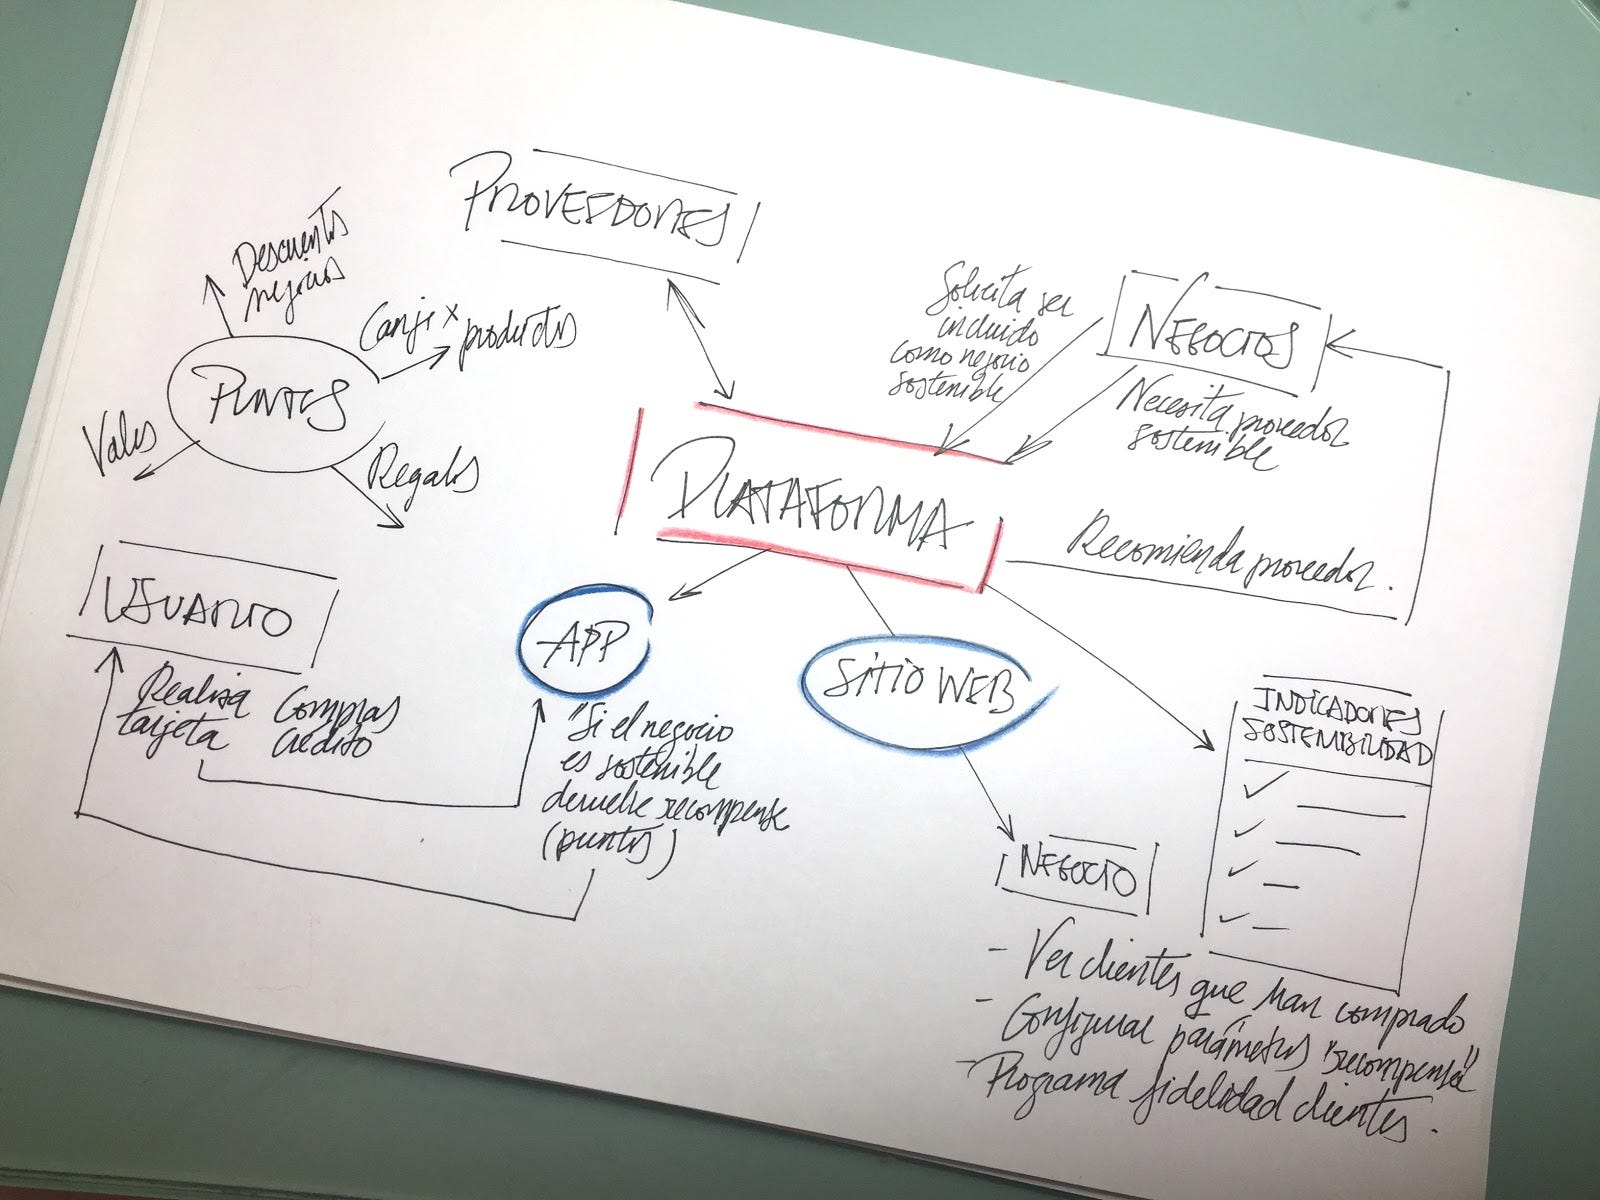 PROVEEDORES
Descuentos
negocios
Canje x
productos
PUNTOS
Vales
Regalos
Solicita ser
incluido
como negocio
sostenible
NEGOCIOS
Necesita proveedor
sostenible
PLATAFORMA
Recomienda proveedor.
USUARIO
Realiza compras
tarjeta crédito
APP
"Si el negocio
es sostenible
devuelve recompensa
(puntos)
SITIO WEB
INDICADORES
SOSTENIBILIDAD
NEGOCIO
- Ver clientes que han comprado
- Configurar parámetros "recompensa"
- Programa fidelidad clientes.